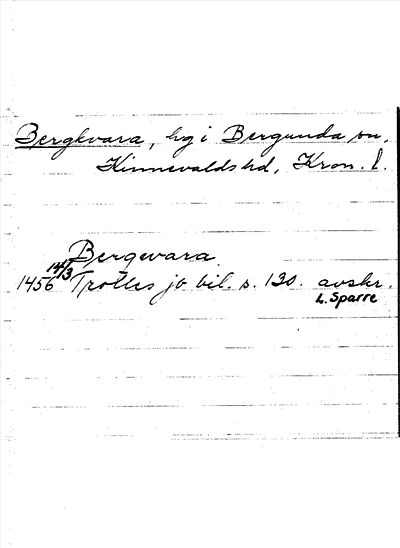 Bergkvara, hg i Bergunda sn,
Kinnevalds hd, Kron. l.
Bergqvara.
1456 14/3 Trolles jb bil. s. 130. avskr.
L. Sparre